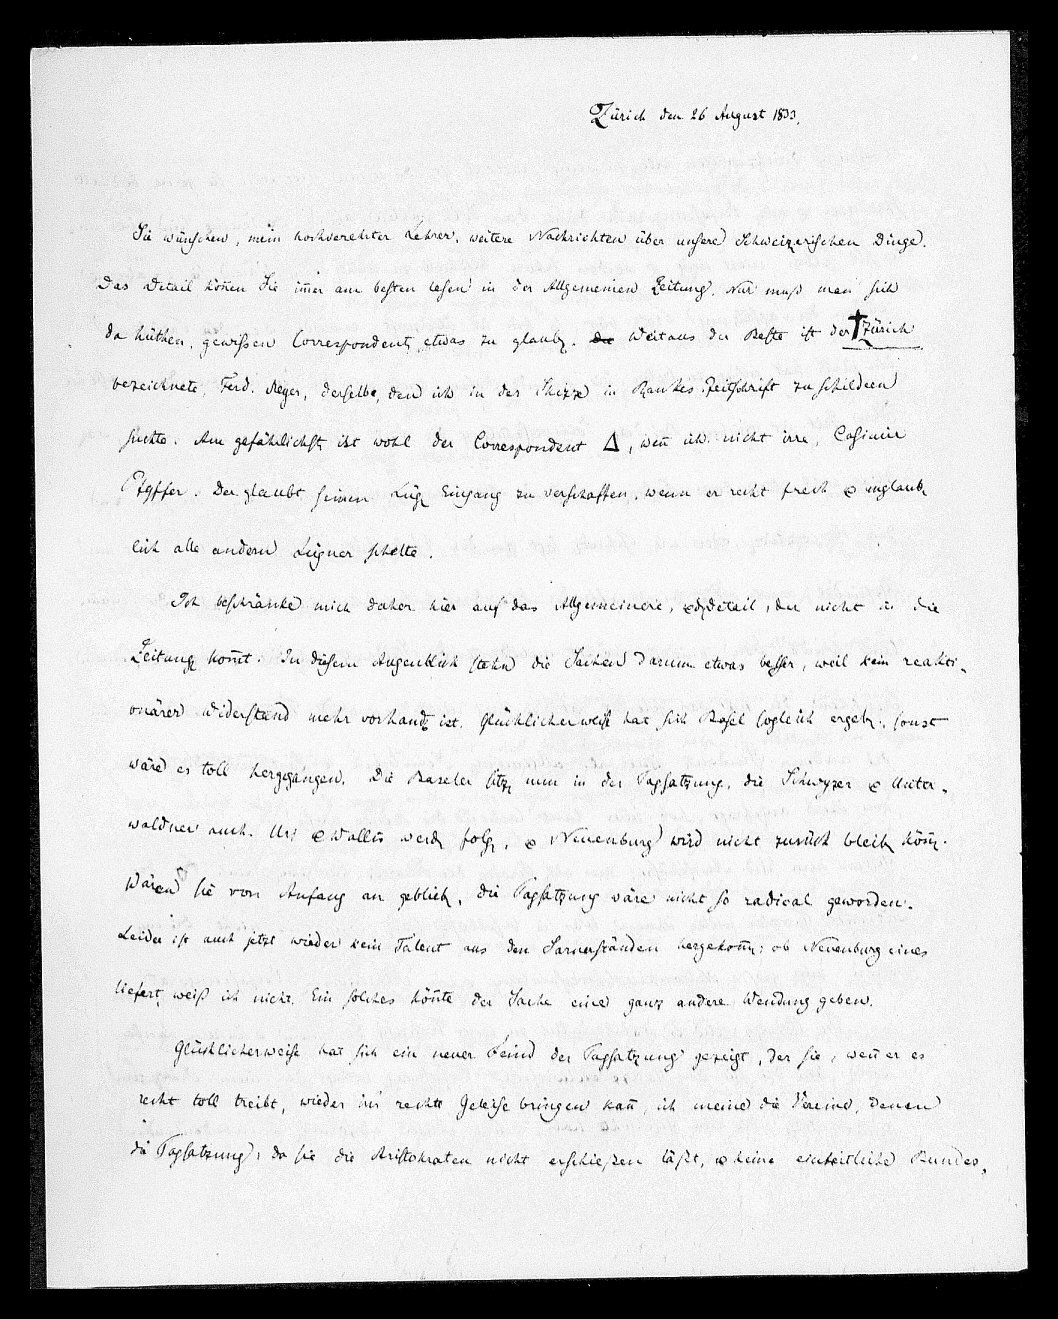 Zürich den 26 August 1833.
Sie wünschen, mein hochverehrter Lehrer, weitere Nachrichten über unsere Schweizerischen Dinge.
Das Detail können Sie im̄er am besten lesen in der Allgemeinen Zeitung. Nur muß man sich
da hüthen, gewissen Correspondenten etwas zu glauben. Weitaus der Beste ist der † Zürich
bezeichnete, Ferd. Meyer, derselbe, den ich in der Skizze in Rankes Zeitschrift zu schildern
suchte. Am gefährlichsten ist wohl der Correspondent Δ, wen̄ ich nicht irre, Casimir
Pfyffer. Der glaubt seinen Lügen Eingang zu verschaffen, wenn er recht frech & unglaub
lich alle andern Lügner schelte.
Ich beschränke mich daher hier auf das Allgemeinere, Detail, der nicht in die
Zeitungen kom̄t. In diesem Augenblick stehn die Sachen darum etwas besser, weil kein reakti-
onärer Widerstand mehr vorhanden ist. Glücklicherweise hat sich Basel sogleich ergeben, sonst
wäre es toll hergegangen. Die Baseler sitzen nun in der Tagsatzung, die Schwyzer & Unter-
waldner auch. Uri & Wallis werden folgen, & Neuenburg wird nicht zurück bleiben kön̄en.
Wären sie von Anfang an geblieben, die Tagsatzung wäre nicht so radical geworden.
Leider ist auch jetzt wieder kein Talent aus den Sarnerständen hergekom̄en; ob Neuenburg eines
liefert, weiß ich nicht. Ein solches kön̄te der Sache eine ganz andere Wendung geben.
Glücklicherweise hat sich ein neuer Feind der Tagsatzung gezeigt, der sie, wen̄ er es
recht toll treibt, wieder ins rechte Geleise bringen kan̄, ich meine die Vereine, denen
die Tagsatzung, da sie die Aristokraten nicht erschießen läßt, & keine einheitliche Bundes-